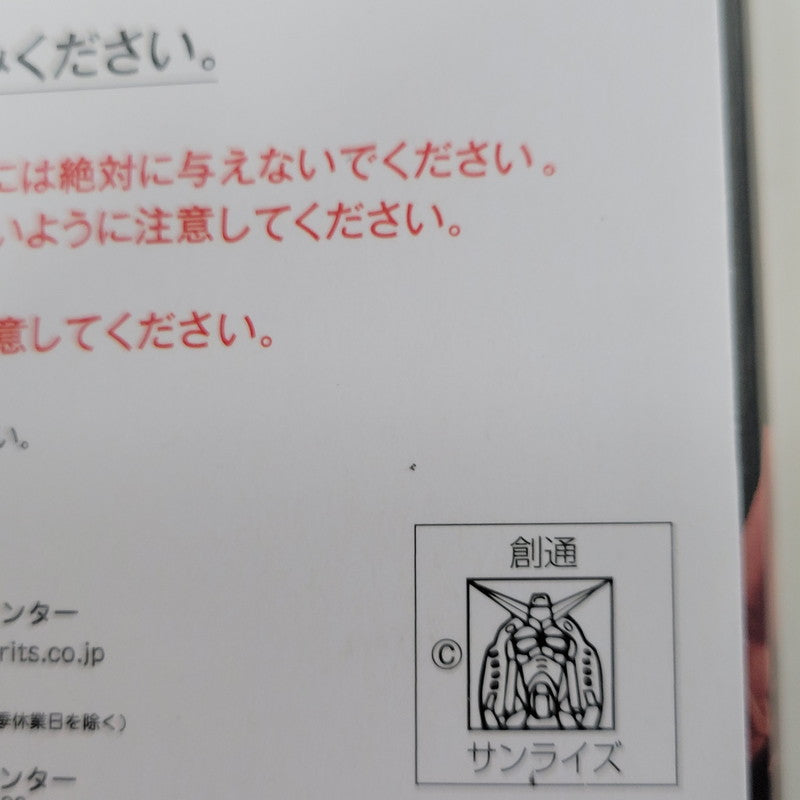 ください。
には絶対に与えないでください。
いように注意してください。
意してください。
い。
ンター
rits.co.jp
季休業日を除く)
ンター
創通
©
サンライズ